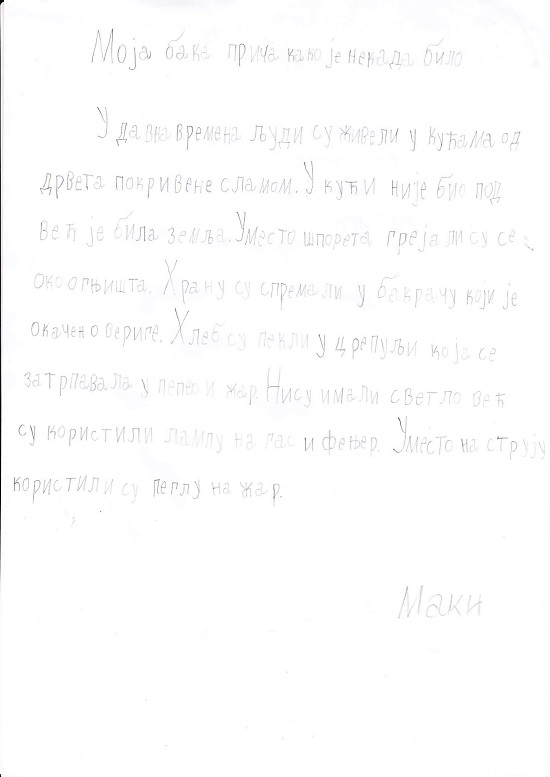 Моја бака прича како је некада било
У давна времена људи су живели у кућама од
дрвета покривене сламом. У кући није био под
већ је била земља. Уместо шпорета грејали су се
око огњишта. Храну су спремали у бакрачу који је
окачен о вериге. Хлеб су пекли у црепуљи која се
затрпавала у пепео и жар. Нису имали светло већ
су користили лампу на гас и фењер. Уместо на струју
користили су пеглу на жар.
Маки